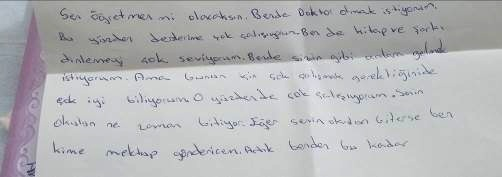 Sen öğretmen mi olacaksın. Bende Doktor olmak istiyorum.
Bu yüzden derslerime çok çalışıyorum. Ben de kitap ve şarkı
dinlemeyi çok seviyorum. Bende sizin gibi gelmek
istiyorum. Ama bunun için çok çalışmak gerektiğinide
çok iyi biliyorum. O yüzdende çok çalışıyorum. Senin
okulun ne zaman bitiyor. Eğer senin okulun biterse ben
kime mektup göndericem. Artık benden bu kadar